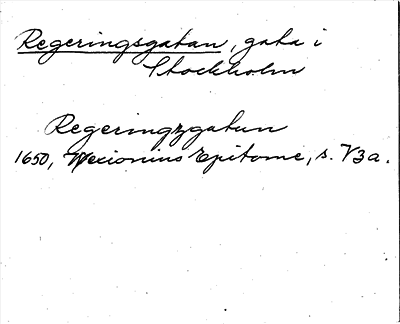 Regeringsgatan, gata i
Stockholm
Regeringzgatun
1650, Wexionius Epitome, s. V3a.